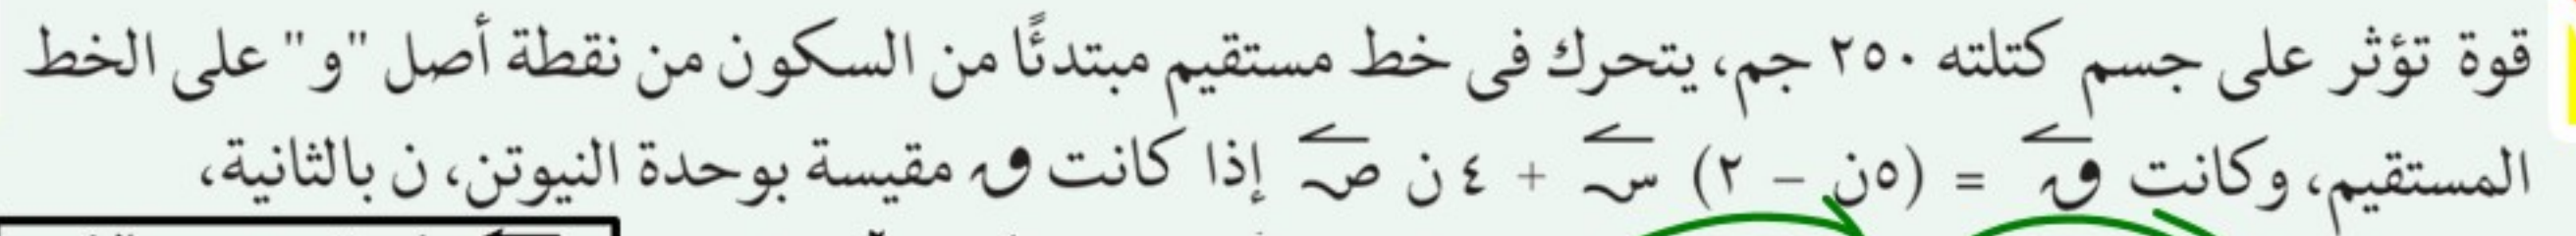 قوة تؤثر على جسم كتلته ٢٥٠ جم، يتحرك فى خط مستقيم مبتدئًا من السكون من نقطة أصل "و" على الخط
المستقيم، وكانت ق = (٥ن - ٢) س + ٤ ن ص إذا كانت ق مقيسة بوحدة النيوتن، ن بالثانية،